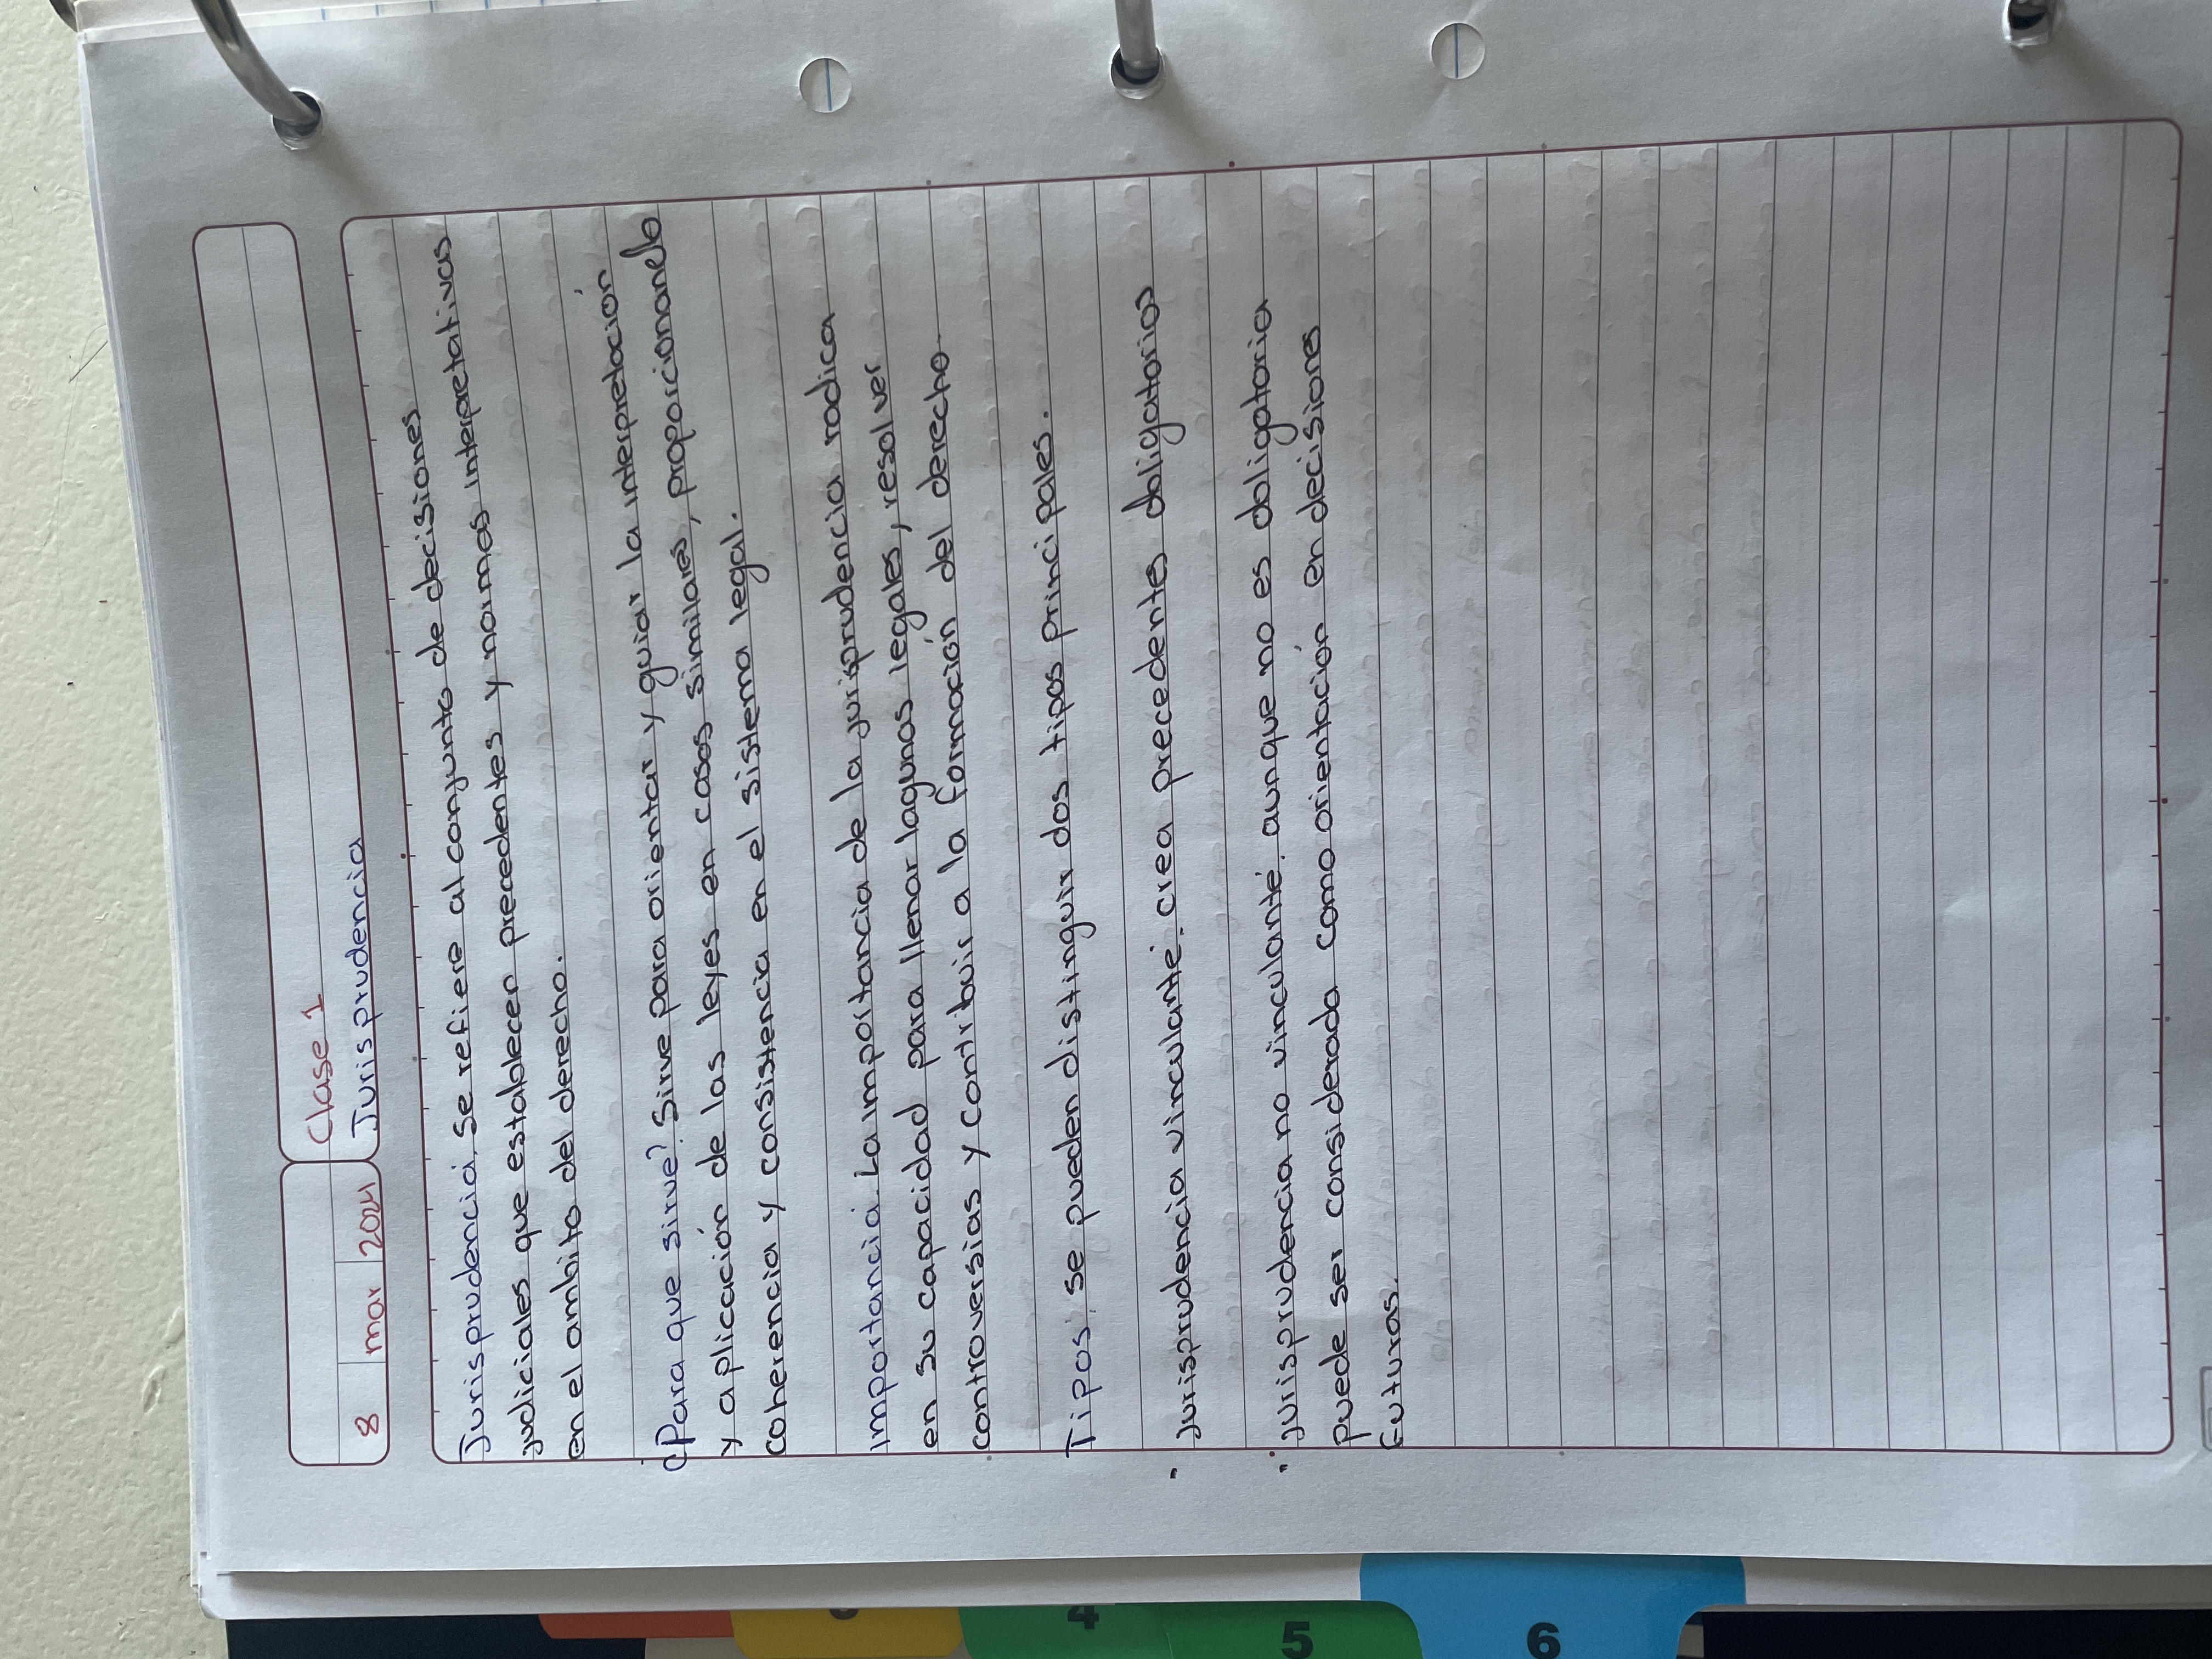 Clase 1
8 mar 2024
Jurisprudencia
Jurisprudencia: Se refiere al conjunto de decisiones
judiciales que establecen precedentes y normas interpretativas
en el ambito del derecho.
¿Para que sirve? Sirve para orientar y guiar la interpretación
y aplicación de las leyes en casos similares, proporcionando
coherencia y consistencia en el sistema legal.
importancia: La importancia de la jurisprudencia radica
en su capacidad para llenar lagunas legales, resolver
controversias y contribuir a la formación del derecho
Tipos: se pueden distinguir dos tipos principales.
" jurisprudencia vinculante: crea precedentes obligatorios
" jurisprudencia no vinculante: aunque no es obligatoria
puede ser considerada como orientación en decisiones
futuras.
3
4
5
6